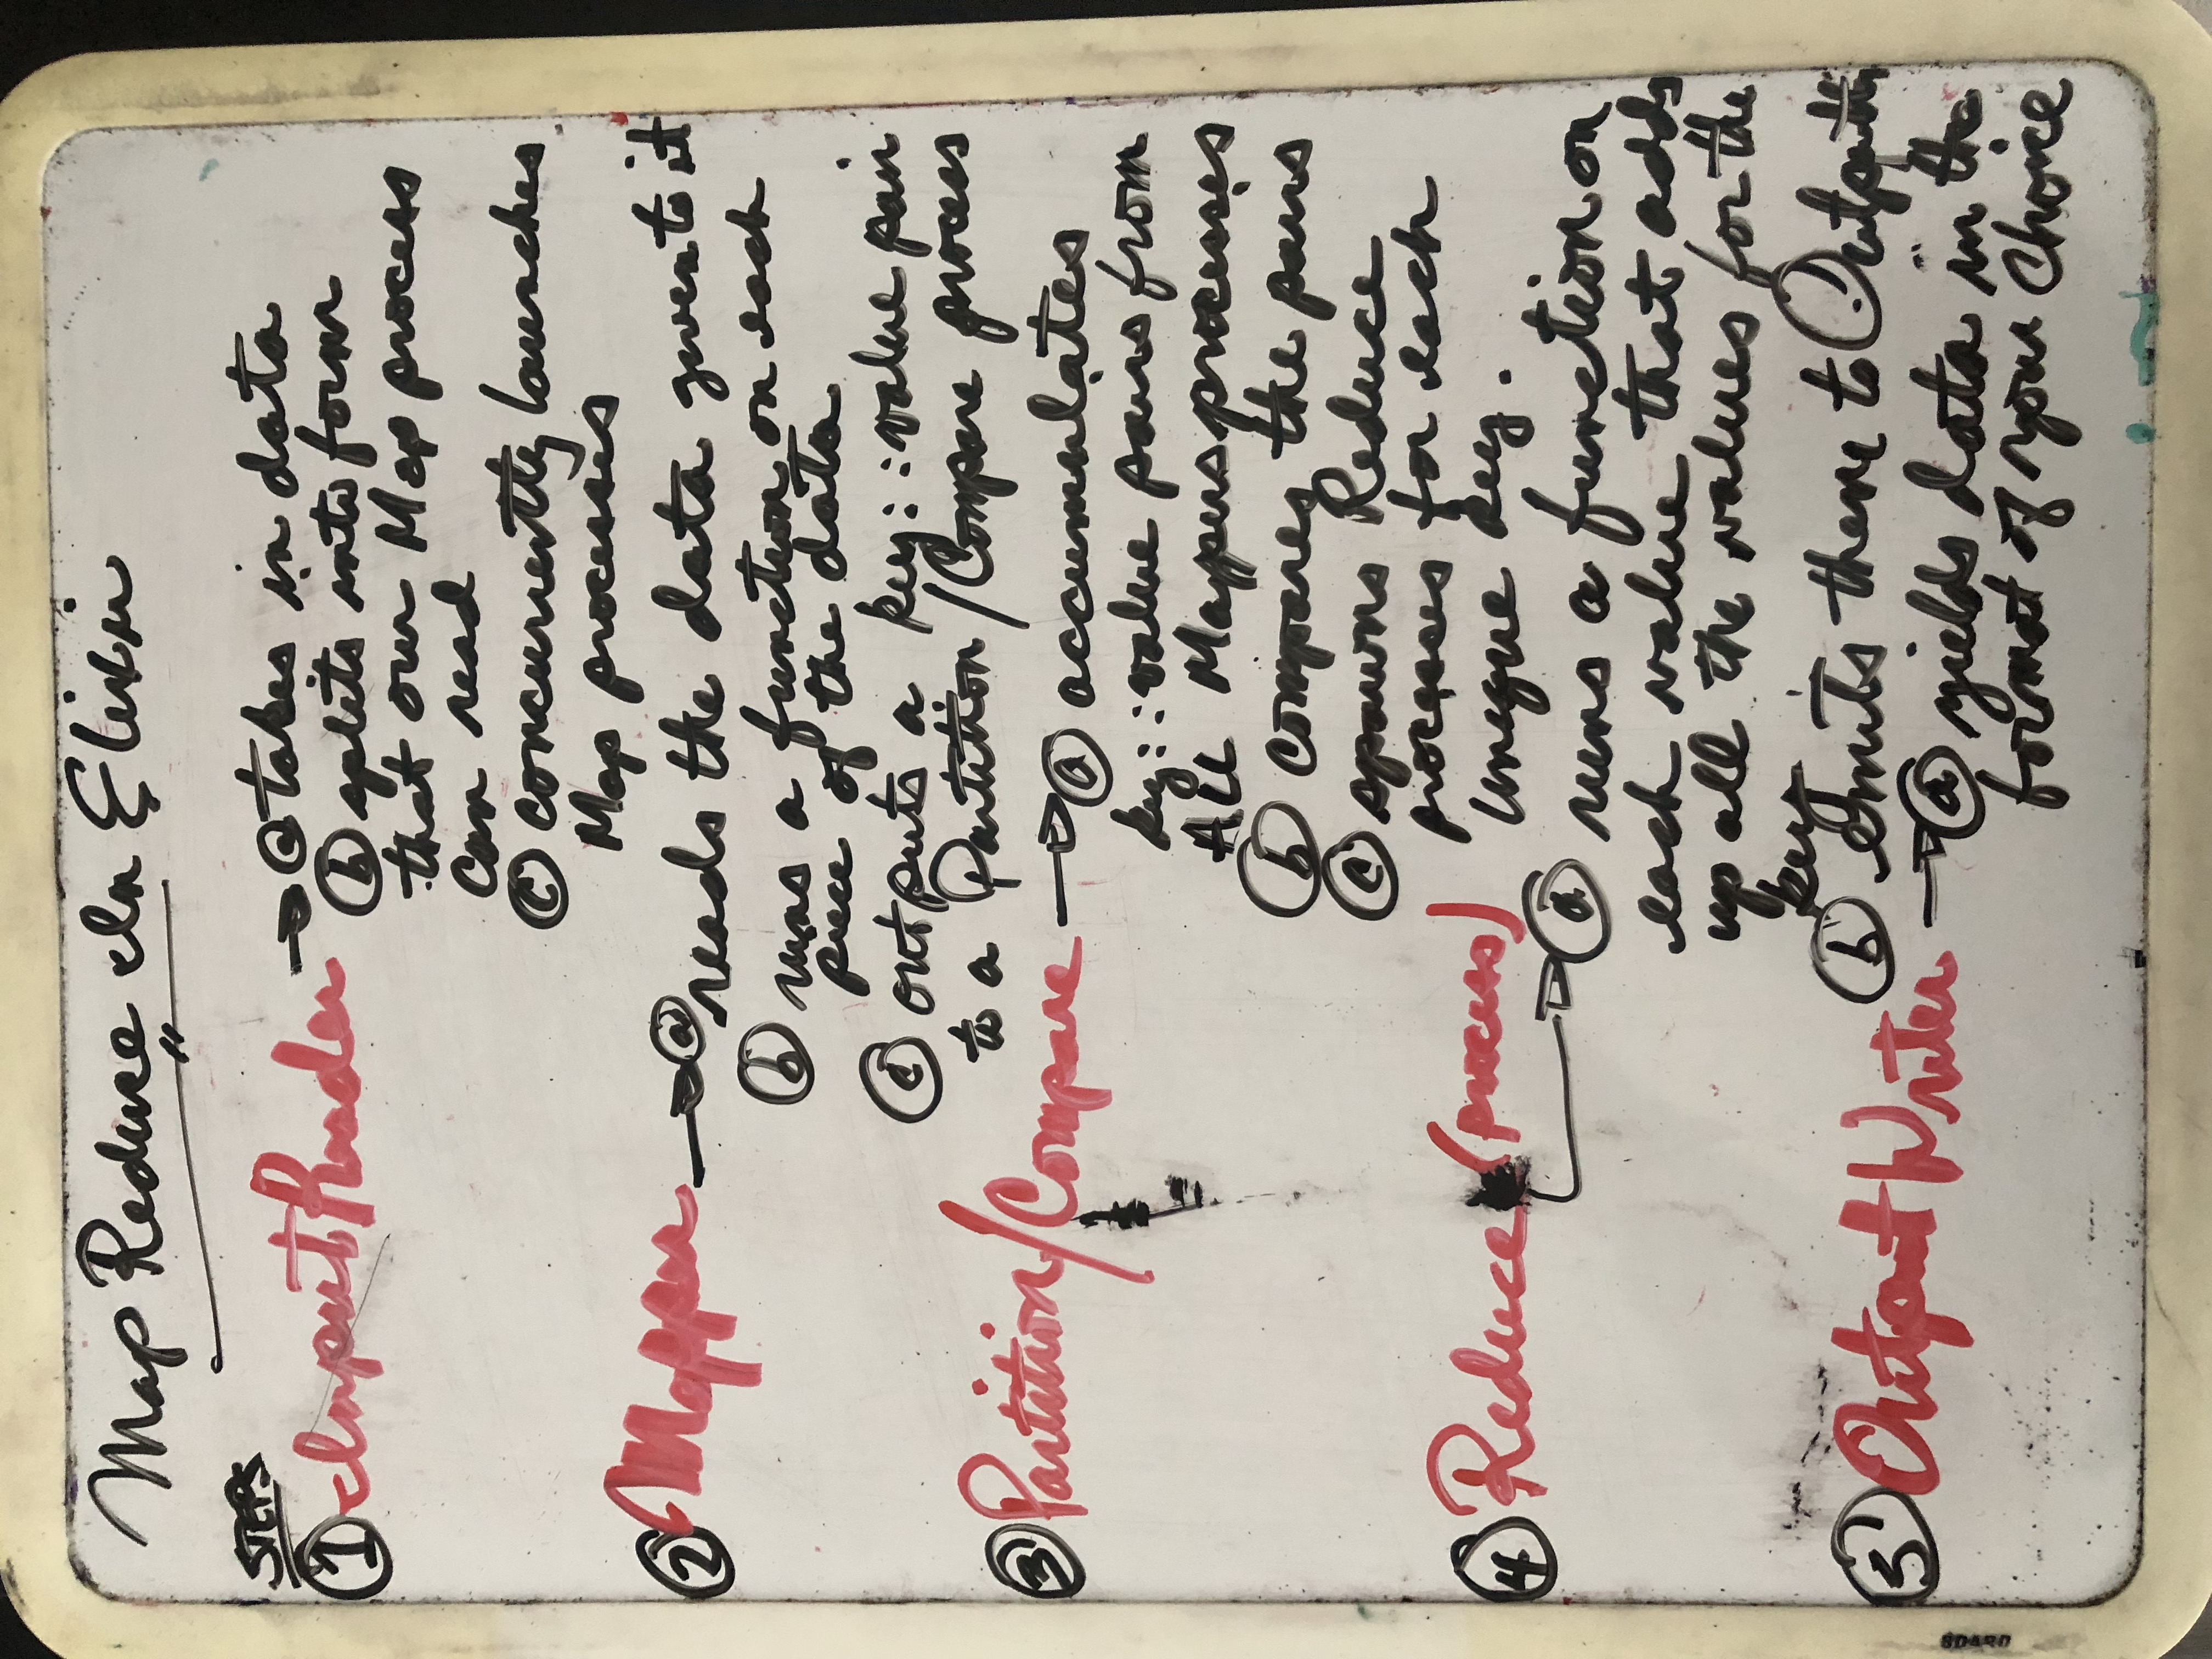 Map Reduce In Elixir
STEPS
① Input Reader → ⓐ takes in data
ⓑ splits into form
that our Map process
can read
ⓒ concurrently launches
Map processes
② Mapper → ⓐ reads the data given to it
ⓑ runs a function on each
piece of the data
ⓒ outputs a key::value pair
to a Partition/Compare process
③ Partition/Compare → ⓐ accumulates
key::value pairs from
ALL Mappers processes
ⓑ compares the pairs
ⓒ spawns Reduce
processes for each
unique key.
④ Reduce (process)
ⓐ runs a function on
each value that adds
up all the values for the
key
ⓑ emits them to
⑤ Output Writer → ⓐ yields data in the
format of your Choice